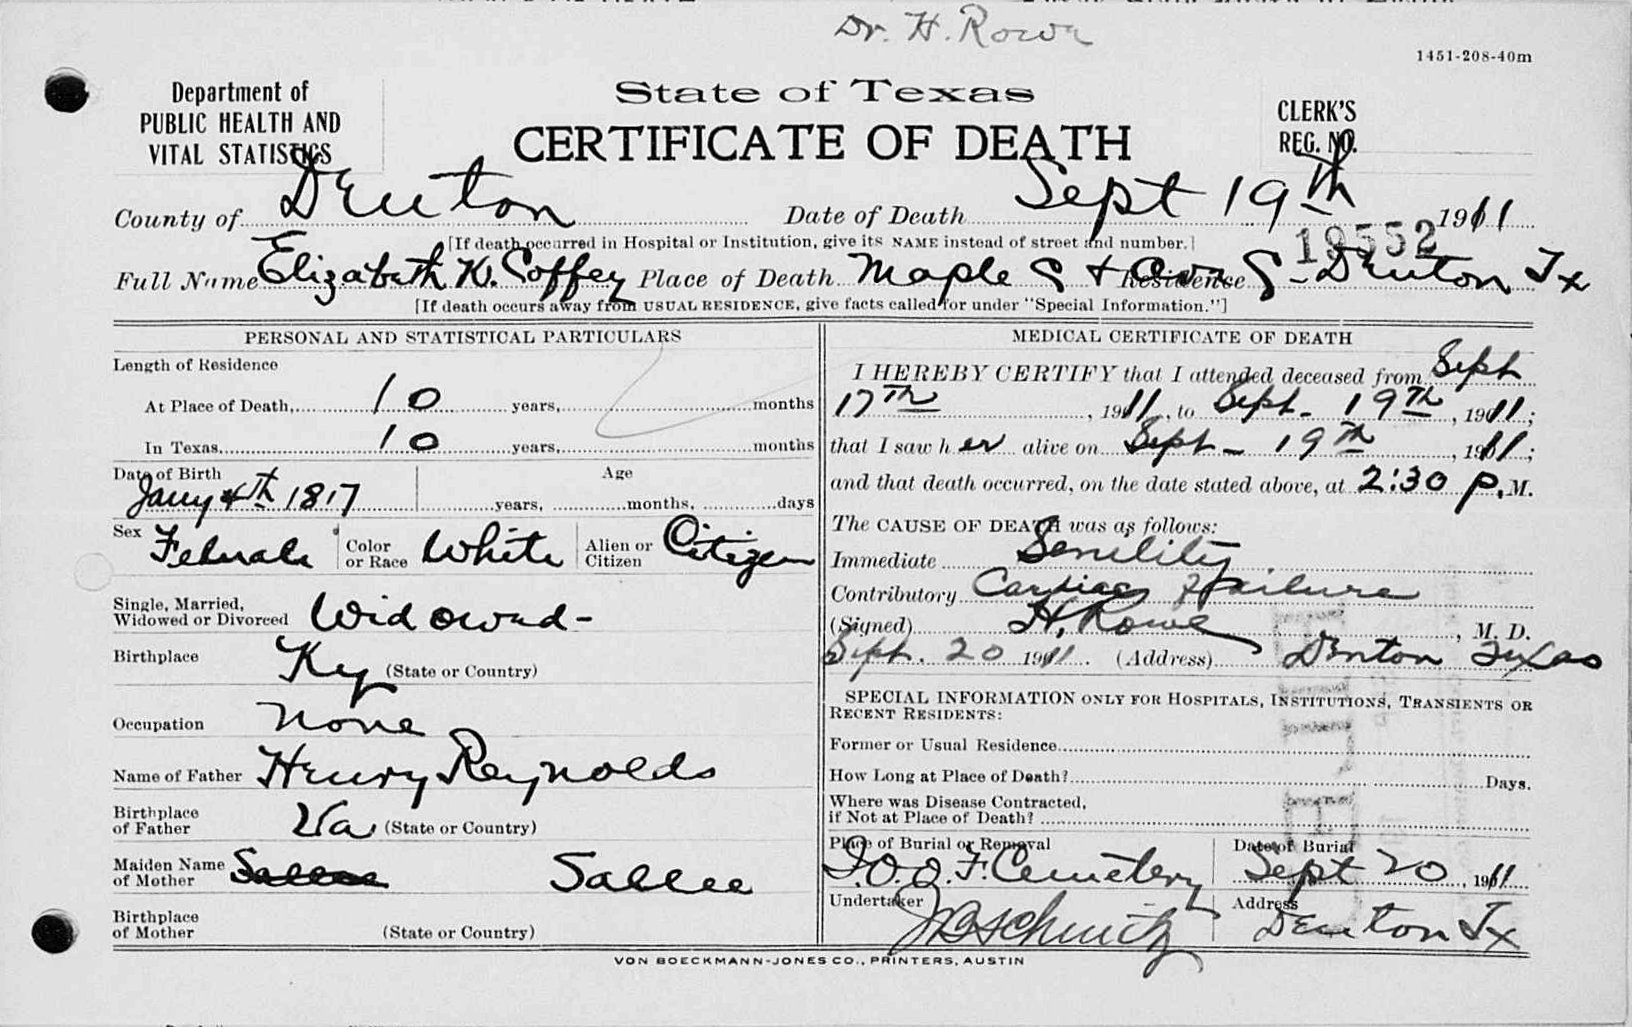 Dr. H. Rowe
1451-208-40m
Department of
PUBLIC HEALTH AND
VITAL STATISTICS
State of Texas
CERTIFICATE OF DEATH
CLERK'S
REG. NO.
County of Denton Date of Death Sept 19th 1911
[If death occurred in Hospital or Institution, give its NAME instead of street and number.]
19552
Full Name Elizabeth K. Coffey Place of Death Maple St + Ave Residence S- Denton Tx
[If death occurs away from USUAL RESIDENCE, give facts called for under "Special Information."]
PERSONAL AND STATISTICAL PARTICULARS
Length of Residence
At Place of Death, 10 years, months
In Texas, 10 years, months
Date of Birth Age
Jany 4th 1817 years, months, days
Sex Female Color or Race White Alien or Citizen Citizen
Single, Married,
Widowed or Divorced Widowed-
Birthplace Ky (State or Country)
Occupation None
Name of Father Henry Reynolds
Birthplace
of Father Va (State or Country)
Maiden Name
of Mother Sallee
Birthplace
of Mother (State or Country)
MEDICAL CERTIFICATE OF DEATH
I HEREBY CERTIFY that I attended deceased from Sept
17th, 1911, to Sept. 19th, 1911;
that I saw her alive on Sept- 19th, 1911;
and that death occurred, on the date stated above, at 2:30 P. M.
The CAUSE OF DEATH was as follows:
Immediate Senility
Contributory Cardiac Failure
(Signed) H. Rowe, M. D.
Sept. 20 1911. (Address) Denton Texas
SPECIAL INFORMATION ONLY FOR HOSPITALS, INSTITUTIONS, TRANSIENTS OR
RECENT RESIDENTS:
Former or Usual Residence
How Long at Place of Death? Days.
Where was Disease Contracted,
if Not at Place of Death?
Place of Burial or Removal Date of Burial
I.O.O.F. Cemetery Sept 20, 1911
Undertaker Address
J B Schmitz Denton Tx
VON BOECKMANN-JONES CO., PRINTERS, AUSTIN